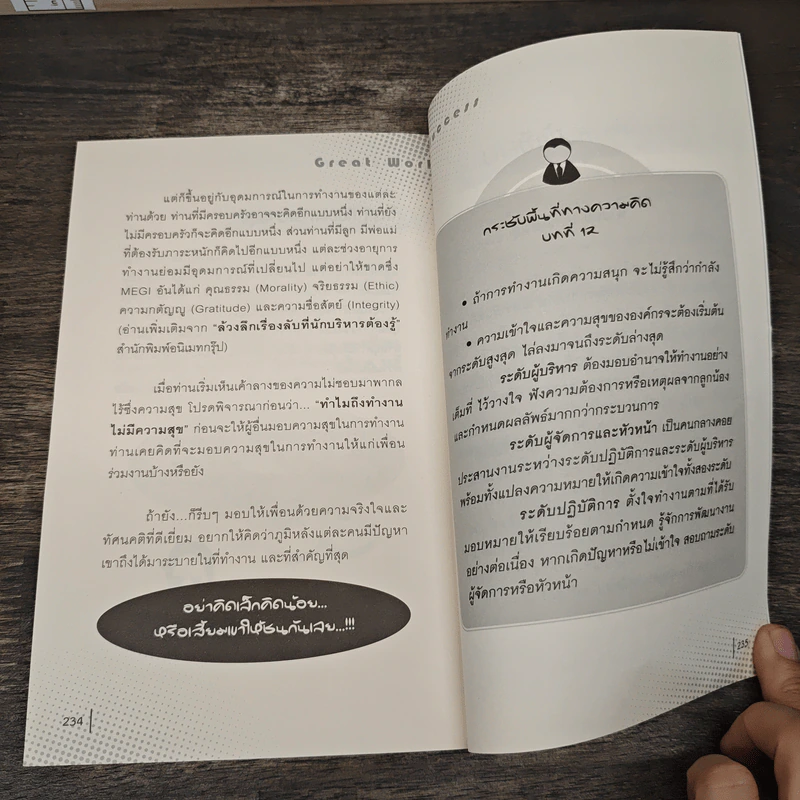 Great Work
แต่ก็ขึ้นอยู่กับอุดมการณ์ในการทำงานของแต่ละ
ท่านด้วย ท่านที่มีครอบครัวอาจจะคิดอีกแบบหนึ่ง ท่านที่ยัง
ไม่มีครอบครัวก็จะคิดอีกแบบหนึ่ง ส่วนท่านที่มีลูก มีพ่อแม่
ที่ต้องรับภาระหนักก็คิดไปอีกแบบหนึ่ง แต่ละช่วงอายุการ
ทำงานย่อมมีอุดมการณ์ที่เปลี่ยนไป แต่อย่าให้ขาดซึ่ง
MEGI อันได้แก่ คุณธรรม (Morality) จริยธรรม (Ethic)
ความกตัญญู (Gratitude) และความซื่อสัตย์ (Integrity)
(อ่านเพิ่มเติมจาก "ล้วงลึกเรื่องลับที่นักบริหารต้องรู้"
สำนักพิมพ์อนิเมทกรุ๊ป)
เมื่อท่านเริ่มเห็นเค้าลางของความไม่ชอบมาพากล
ไร้ซึ่งความสุข โปรดพิจารณาก่อนว่า... "ทำไมถึงทำงาน
ไม่มีความสุข" ก่อนจะให้ผู้อื่นมอบความสุขในการทำงาน
ท่านเคยคิดที่จะมอบความสุขในการทำงานให้แก่เพื่อน
ร่วมงานบ้างหรือยัง
ถ้ายัง...ก็รีบๆ มอบให้เพื่อนด้วยความจริงใจและ
ทัศนคติที่ดีเยี่ยม อยากให้คิดว่าภูมิหลังแต่ละคนมีปัญหา
เขาถึงได้มาระบายในที่ทำงาน และที่สำคัญที่สุด
อย่าคิดเล็กคิดน้อย...
หรือเสี้ยมเขาให้ชนกันเลย...!!!
234
ccess
กระชับพื้นที่ทางความคิด
บทที่ 12
• ถ้าการทำงานเกิดความสนุก จะไม่รู้สึกว่ากำลัง
ทำงาน
• ความเข้าใจและความสุขขององค์กรจะต้องเริ่มต้น
จากระดับสูงสุด ไล่ลงมาจนถึงระดับล่างสุด
ระดับผู้บริหาร ต้องมอบอำนาจให้ทำงานอย่าง
เต็มที่ ไว้วางใจ ฟังความต้องการหรือเหตุผลจากลูกน้อง
และกำหนดผลลัพธ์มากกว่ากระบวนการ
ระดับผู้จัดการและหัวหน้า เป็นคนกลางคอย
ประสานงานระหว่างระดับปฏิบัติการและระดับผู้บริหาร
พร้อมทั้งแปลงความหมายให้เกิดความเข้าใจทั้งสองระดับ
ระดับปฏิบัติการ ตั้งใจทำงานตามที่ได้รับ
มอบหมายให้เรียบร้อยตามกำหนด รู้จักการพัฒนางาน
อย่างต่อเนื่อง หากเกิดปัญหาหรือไม่เข้าใจ สอบถามระดับ
ผู้จัดการหรือหัวหน้า
235